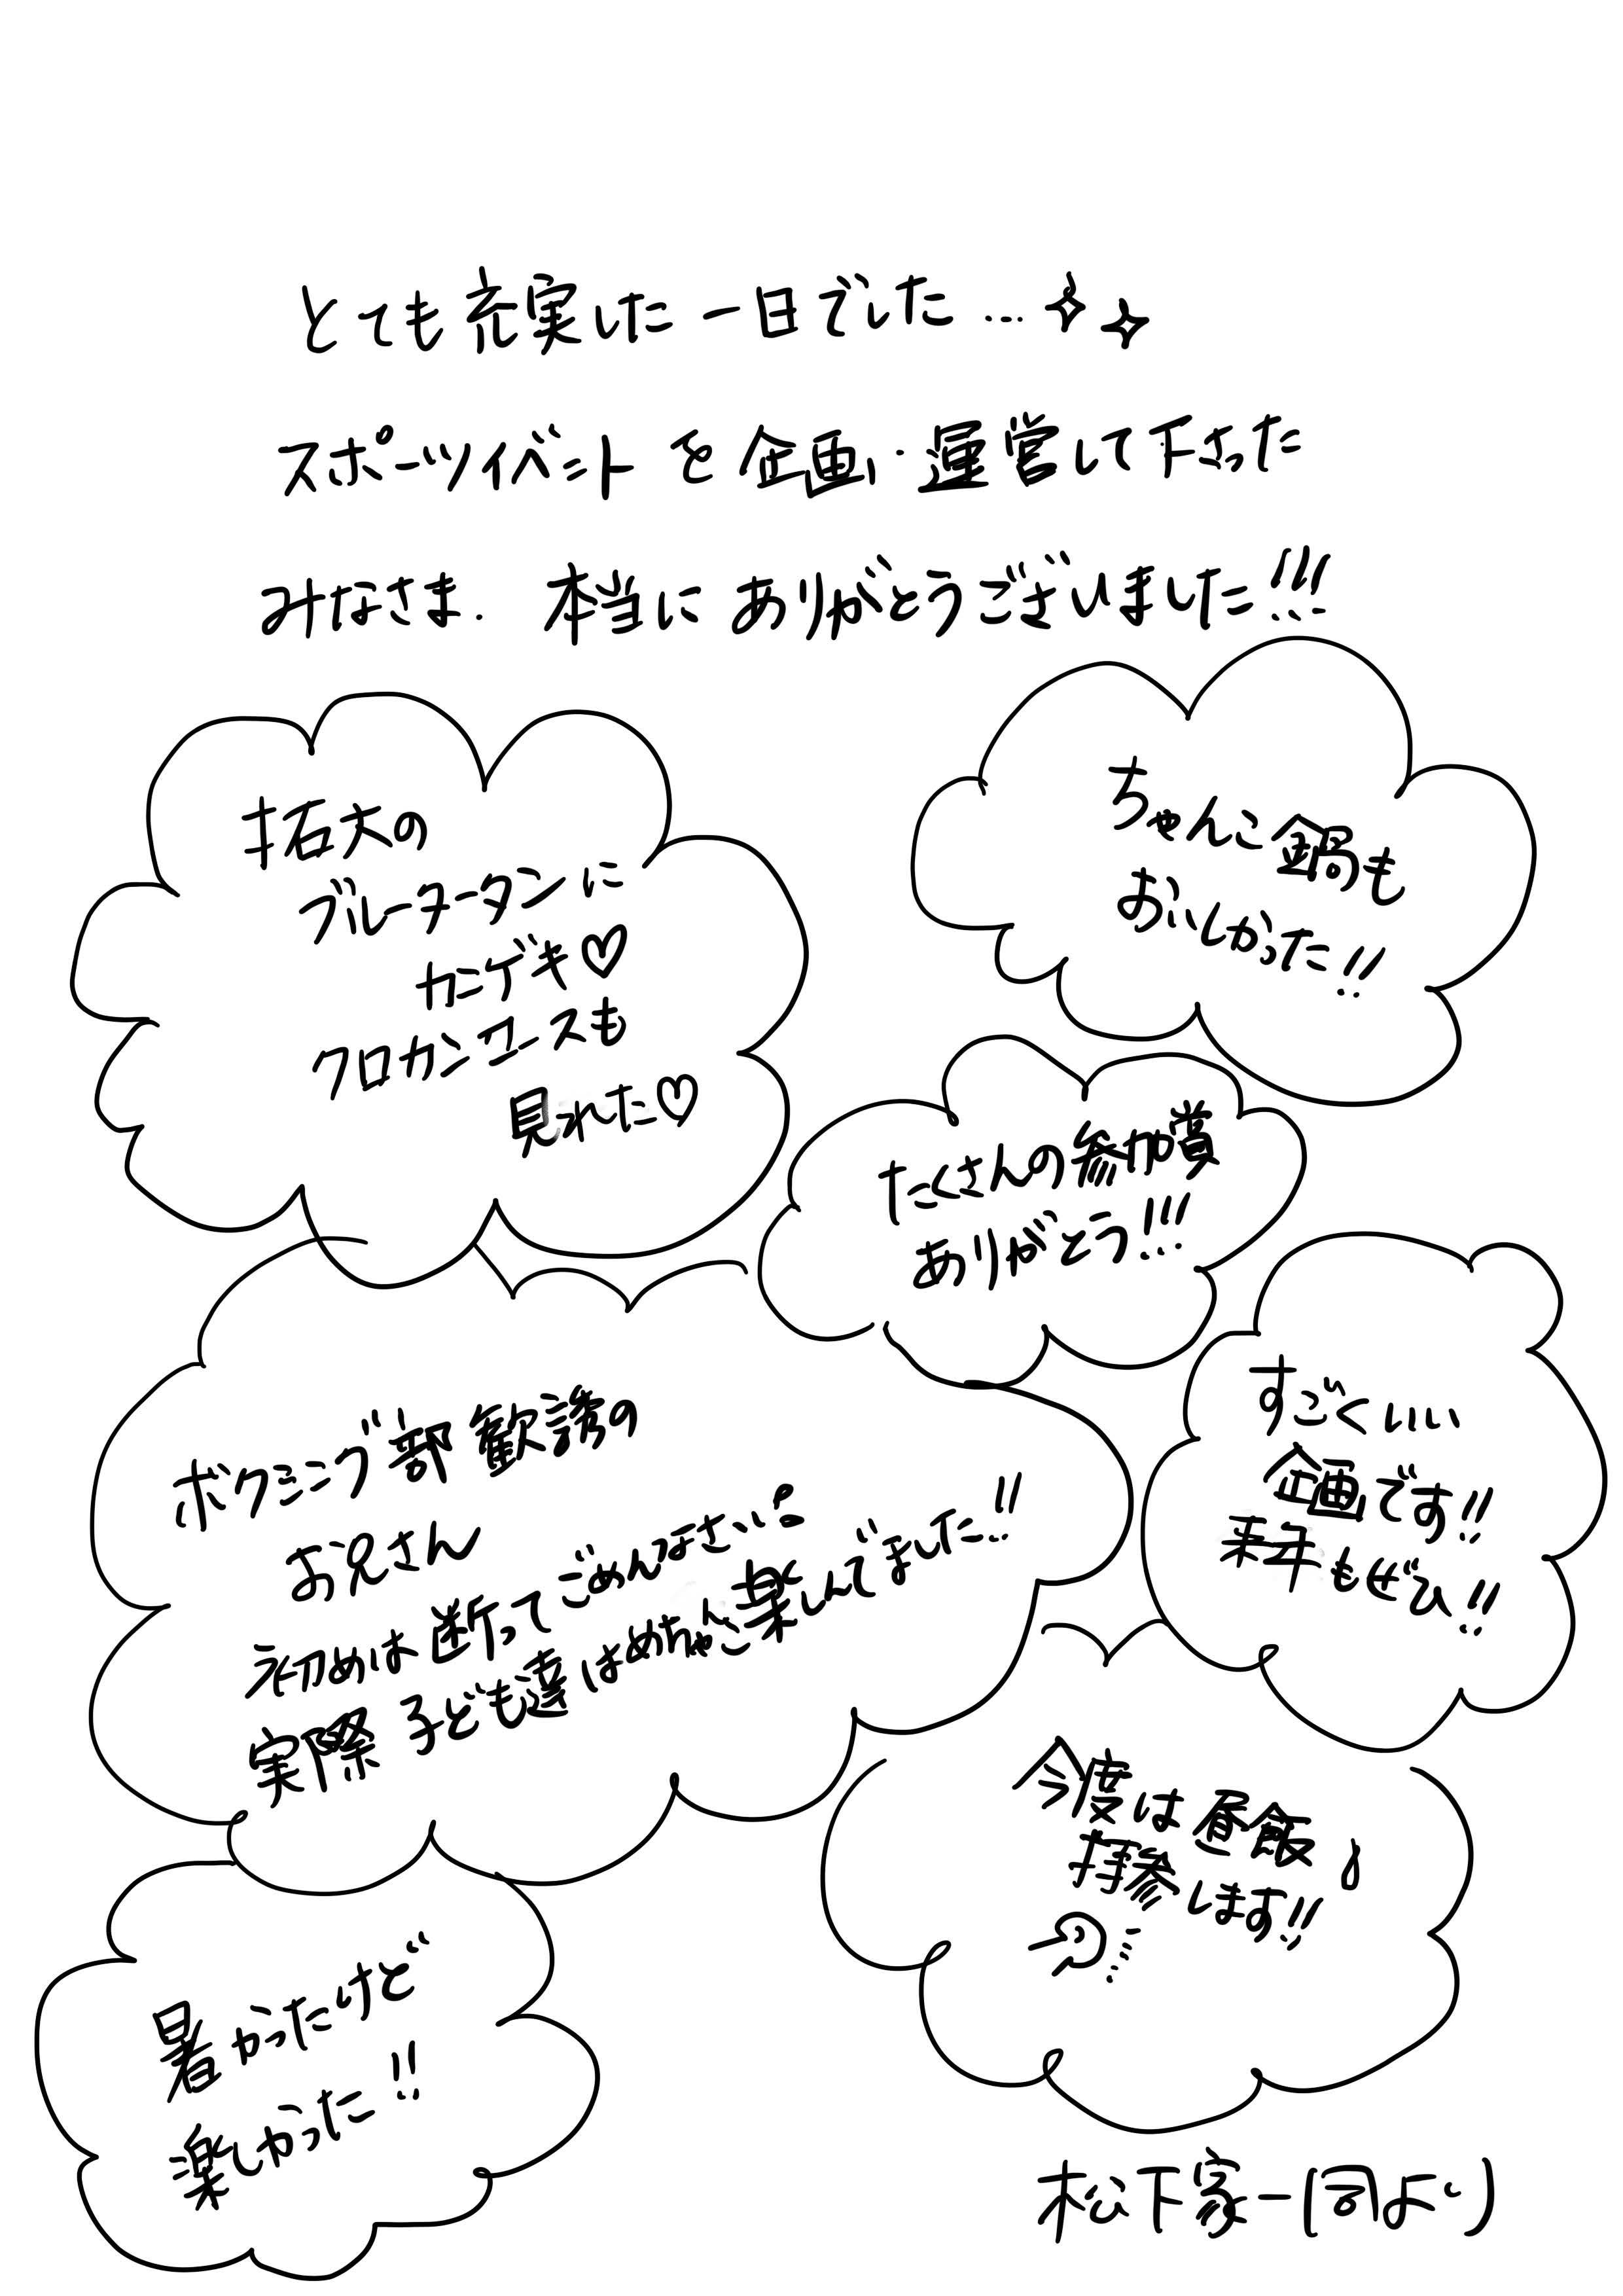 とても充実した一日でした…
スポーツイベントを企画・運営して下さった
みなさま. 本当にありがとうございました!!!
拓大の
ブルーオータンに
カンゲキ♡
クロカンコースも
見れた♡
ちゃんこ鍋も
おいしかった!!
たくさんの参加賞
ありがとう!!!
ボクシング部歓誘の
お兄さん
初めは断ってごめんなさい
実際子ども達はめちゃんこ楽しんでました!!
すごくいい
企画です!!
来年もぜひ!!
今度は昼飯
持参します!!
暑かったけど
楽しかった!!
松下家一同より